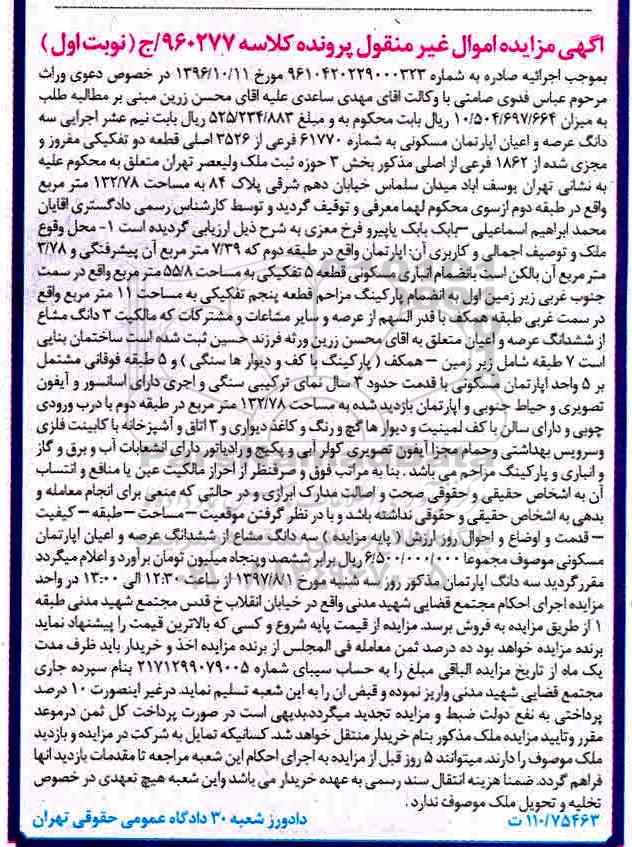 اگهی مزایده اموال غیر منقول پرونده کلاسه ۹۶۰۲۷۷/ج (نوبت اول)
بموجب اجرائیه صادره به شماره ۹۶۱۰۴۲۰۲۲۹۰۰۰۳۲۳ مورخ ۱۳۹۶/۱۰/۱۱ در خصوص دعوی وراث
مرحوم عباس فدوی صامتی با وکالت اقای مهدی ساعدی علیه اقای محسن زرین مبنی بر مطالبه طلب
به میزان ۱۰/۵۰۴/۶۹۷/۶۶۴ ریال بابت محکوم به و مبلغ ۵۲۵/۲۳۴/۸۸۳ ریال بابت نیم عشر اجرایی سه
دانگ عرصه و اعیان اپارتمان مسکونی به شماره ۶۱۷۷۰ فرعی از ۳۵۲۶ اصلی قطعه دو تفکیکی مفروز و
مجزی شده از ۱۸۶۲ فرعی از اصلی مذکور بخش ۳ حوزه ثبت ملک ولیعصر تهران متعلق به محکوم علیه
به نشانی تهران یوسف اباد میدان سلماس خیابان دهم شرقی پلاک ۸۴ به مساحت ۱۳۲/۷۸ متر مربع
واقع در طبقه دوم ازسوی محکوم لهما معرفی و توقیف گردید و توسط کارشناس رسمی دادگستری اقایان
محمد ابراهیم اسماعیلی –بابک بابک پاپیرو فرخ معزی به شرح ذیل ارزیابی گردیده است ۱- محل وقوع
ملک و توصیف اجمالی و کاربری آن: اپارتمان واقع در طبقه دوم که ۷/۳۹ متر مربع آن پیشرفتگی و ۳/۷۸
متر مربع آن بالکن است بانضمام انباری مسکونی قطعه ۵ تفکیکی به مساحت ۵۵/۸ متر مربع واقع در سمت
جنوب غربی زیر زمین اول به انضمام پارکینگ مزاحم قطعه پنجم تفکیکی به مساحت ۱۱ متر مربع واقع
در سمت غربی طبقه همکف با قدر السهم از عرصه و سایر مشاعات و مشترکات که مالکیت ۳ دانگ مشاع
از ششدانگ عرصه و اعیان متعلق به اقای محسن زرین ورثه فرزند حسین ثبت شده است ساختمان بنایی
است ۷ طبقه شامل زیر زمین – همکف ( پارکینگ با کف و دیوار ها سنگی ) و ۵ طبقه فوقانی مشتمل
بر ۵ واحد اپارتمان مسکونی با قدمت حدود ۳ سال نمای ترکیبی سنگی و اجری دارای اسانسور و آیفون
تصویری و حیاط جنوبی و اپارتمان بازدید شده به مساحت ۱۳۲/۷۸ متر مربع در طبقه دوم با درب ورودی
چوبی و دارای سالن با کف لمینیت و دیوار ها گچ و رنگ و کاغذ دیواری و ۳ اتاق و آشپزخانه با کابینت فلزی
وسرویس بهداشتی وحمام مجزا آیفون تصویری کولر آبی و پکیج و رادیاتور دارای انشعابات آب و برق و گاز
و انباری و پارکینگ مزاحم می باشد . بنا به مراتب فوق و صرفنظر از احراز مالکیت عین یا منافع و انتساب
آن به اشخاص حقیقی و حقوقی صحت و اصالت مدارک ابرازی و در حالتی که منعی برای انجام معامله و
بدهی به اشخاص حقیقی و حقوقی نداشته باشد و با در نظر گرفتن موقعیت – مساحت – طبقه – کیفیت
– قدمت و اوضاع و احوال روز ارزش ( پایه مزایده ) سه دانگ مشاع از ششدانگ عرصه و اعیان اپارتمان
مسکونی موصوف مجموعا ۶/۵۰۰/۰۰۰/۰۰۰ ریال برابر ششصد وپنجاه میلیون تومان برآورد و اعلام میگردد
مقرر گردید سه دانگ اپارتمان مذکور روز سه شنبه مورخ ۱۳۹۷/۸/۱ از ساعت ۱۲:۳۰ الی ۱۳:۰۰ در واحد
مزایده اجرای احکام مجتمع قضایی شهید مدنی واقع در خیابان انقلاب خ قدس مجتمع شهید مدنی طبقه
۱ از طریق مزایده به فروش برسد. مزایده از قیمت پایه شروع و کسی که بالاترین قیمت را پیشنهاد نماید
برنده مزایده خواهد بود ده درصد ثمن معامله فی المجلس از برنده مزایده اخذ و خریدار باید ظرف مدت
یک ماه از تاریخ مزایده الباقی مبلغ را به حساب سیبای شماره ۲۱۷۱۲۹۹۰۷۹۰۰۵ بنام سپرده جاری
مجتمع قضایی شهید مدنی واریز نموده و قبض ان را به این شعبه تسلیم نماید. درغیر اینصورت ۱۰ درصد
پرداختی به نفع دولت ضبط و مزایده تجدید میگرددبدیهی است در صورت پرداخت کل ثمن درموعد
مقرر وتایید مزایده ملک مذکور بنام خریدار منتقل خواهد شد. کسانیکه تمایل به شرکت در مزایده و بازدید
ملک موصوف را دارند. میتوانند ۵ روز قبل از مزایده به اجرای احکام این شعبه مراجعه تا مقدمات بازدید انها
فراهم گردد. ضمنا هزینه انتقال سند رسمی به عهده خریدار می باشد واین شعبه هیچ تعهدی در خصوص
تخلیه و تحویل ملک موصوف ندارد .
۱۱۰/۷۵۴۶۳ ت دادورز شعبه ۳۰ دادگاه عمومی حقوقی تهران